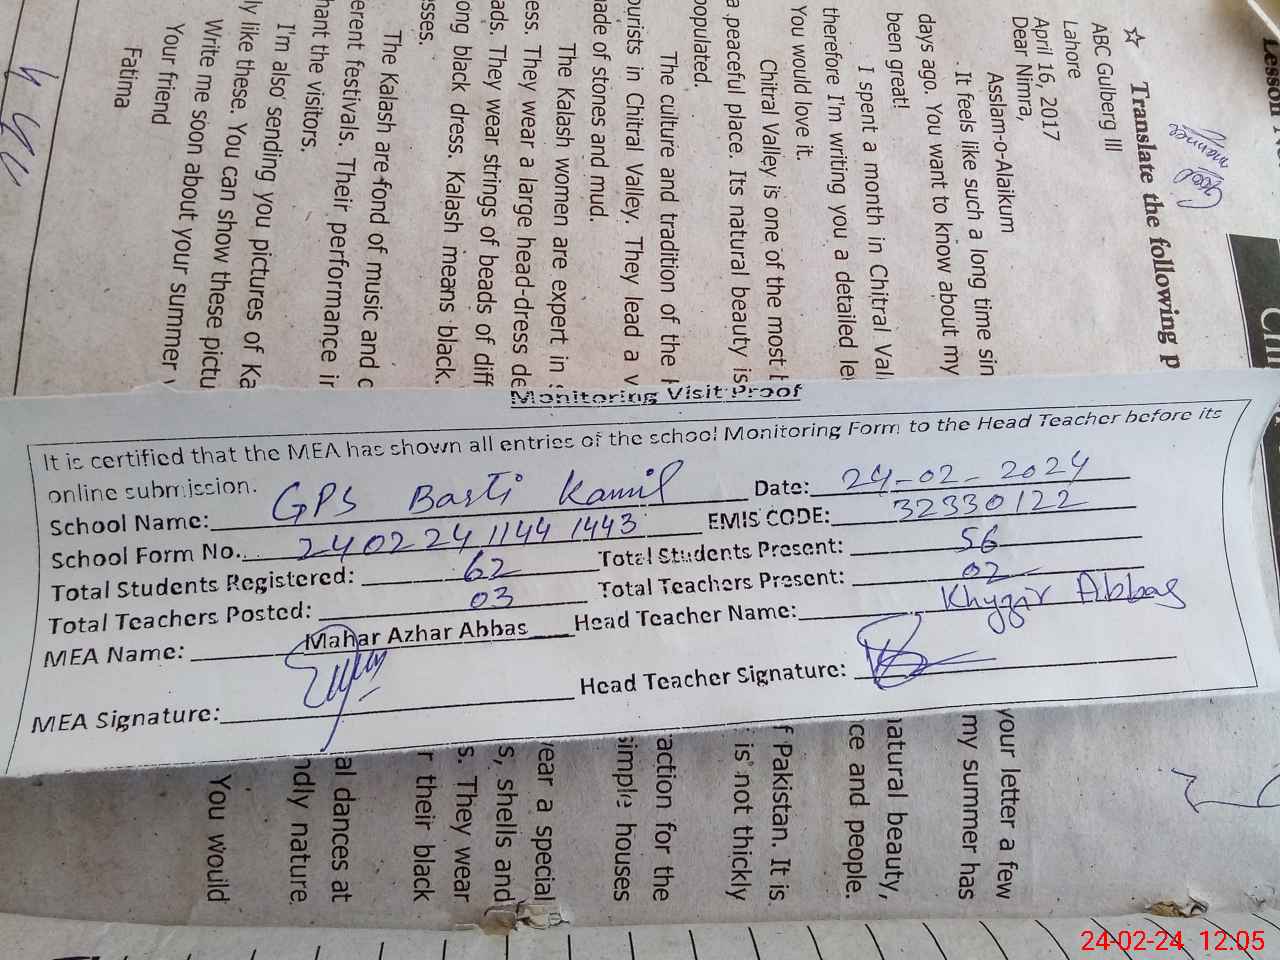 Monitoring Visit Proof
It is certified that the MEA has shown all entries of the school Monitoring Form to the Head Teacher before its
online submission.
School Name: GPS Basti Kamil Date: 24-02-2024
School Form No. 2402241144 1443 EMIS CODE: 32330122
Total Students Registered: 62 Total Students Present: 56
Total Teachers Posted: 03 Total Teachers Present: 02
MEA Name: Mahar Azhar Abbas Head Teacher Name: Khyzir Abbas
MEA Signature: Head Teacher Signature:
Lesson
☆ Translate the following p
ABC Gulberg III
Lahore
April 16, 2017
Dear Nimra,
Asslam-o-Alaikum
It feels like such a long time sin your letter a few
days ago. You want to know about my my summer has
been great!
I spent a month in Chitral Val natural beauty,
therefore I'm writing you a detailed le ce and people.
You would love it.
Chitral Valley is one of the most f Pakistan. It is
a peaceful place. Its natural beauty is is not thickly
populated.
The culture and tradition of the action for the
ourists in Chitral Valley. They lead a simple houses
made of stones and mud.
The Kalash women are expert in year a special
ess. They wear a large head-dress de s, shells and
ads. They wear strings of beads of diff s. They wear
ong black dress. Kalash means black. r their black
esses.
The Kalash are fond of music and
erent festivals. Their performance in al dances at
hant the visitors. ndly nature
I'm also sending you pictures of Ka
ly like these. You can show these pictu
Write me soon about your summer You would
Your friend
Fatima
Good
24-02-24 12:05